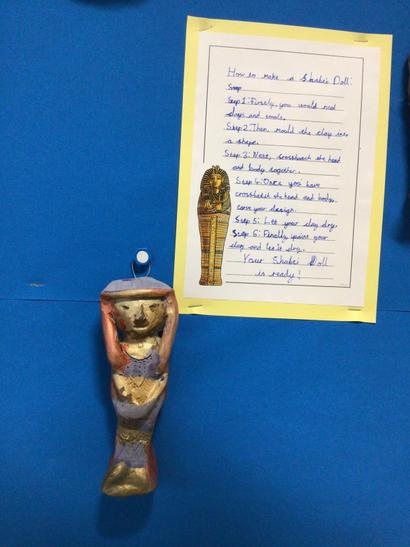 How to make a Shabti Doll:
Step
Step 1: Firstly, you would need
clay and tools.
Step 2: Then, mould the clay into
a shape.
Step 3: Next, crosshatch the head
and body together.
Step 4: Once you have
crosshatch the head and body,
carve your design.
Step 5: Let your clay dry.
Step 6: Finally, paint your
clay and let it dry.
Your Shabti Doll
is ready!